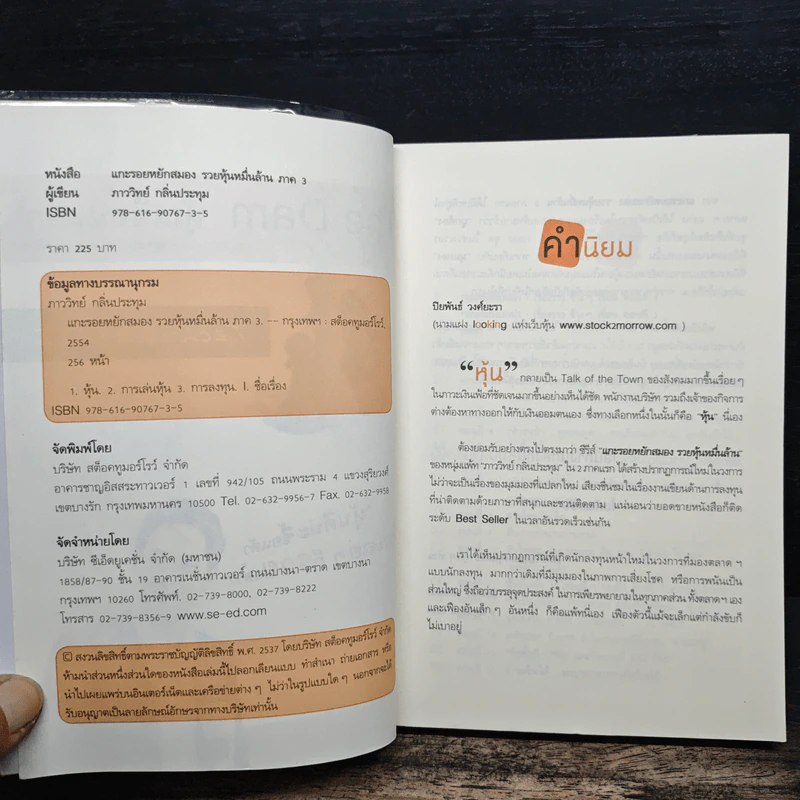 หนังสือ แกะรอยหยักสมอง รวยหุ้นหมื่นล้าน ภาค 3
ผู้เขียน ภาววิทย์ กลิ่นประทุม
ISBN 978-616-90767-3-5
ราคา 225 บาท
ข้อมูลทางบรรณานุกรม
ภาววิทย์ กลิ่นประทุม
แกะรอยหยักสมอง รวยหุ้นหมื่นล้าน ภาค 3. -- กรุงเทพฯ : สต็อคทูมอร์โรว์,
2554
256 หน้า
1. หุ้น. 2. การเล่นหุ้น 3. การลงทุน. I. ชื่อเรื่อง
ISBN 978-616-90767-3-5
จัดพิมพ์โดย
บริษัท สต็อคทูมอร์โรว์ จำกัด
อาคารชาญอิสสระทาวเวอร์ 1 เลขที่ 942/105 ถนนพระราม 4 แขวงสุริยวงศ์
เขตบางรัก กรุงเทพมหานคร 10500 Tel. 02-632-9956-7 Fax. 02-632-9958
จัดจำหน่ายโดย
บริษัท ซีเอ็ดยูเคชั่น จำกัด (มหาชน)
1858/87-90 ชั้น 19 อาคารเนชั่นทาวเวอร์ ถนนบางนา-ตราด เขตบางนา
กรุงเทพฯ 10260 โทรศัพท์. 02-739-8000, 02-739-8222
โทรสาร 02-739-8356-9 www.se-ed.com
© สงวนลิขสิทธิ์ตามพระราชบัญญัติลิขสิทธิ์ พ.ศ. 2537 โดยบริษัท สต็อคทูมอร์โรว์ จำกัด
ห้ามนำส่วนหนึ่งส่วนใดของหนังสือเล่มนี้ไปลอกเลียนแบบ ทำสำเนา ถ่ายเอกสาร หรือ
นำไปเผยแพร่บนอินเตอร์เน็ตและเครือข่ายต่าง ๆ ไม่ว่าในรูปแบบใด ๆ นอกจากจะได้
รับอนุญาตเป็นลายลักษณ์อักษรจากทางบริษัทเท่านั้น
คำนิยม
ปิยพันธ์ วงศ์ยะรา
(นามแฝง looking แห่งเว็บหุ้น www.stock2morrow.com )
“หุ้น” กลายเป็น Talk of the Town ของสังคมมากขึ้นเรื่อย ๆ
ในภาวะเงินเฟ้อที่ชัดเจนมากขึ้นอย่างเห็นได้ชัด พนักงานบริษัท รวมถึงเจ้าของกิจการ
ต่างต้องหาทางออกให้กับเงินออมตนเอง ซึ่งทางเลือกหนึ่งในนั้นก็คือ "หุ้น" นี่เอง
ต้องยอมรับอย่างตรงไปตรงมาว่า ซีรีส์ "แกะรอยหยักสมอง รวยหุ้นหมื่นล้าน"
ของหนุ่มแพ้ท "ภาววิทย์ กลิ่นประทุม" ใน 2 ภาคแรก ได้สร้างปรากฏการณ์ใหม่ในวงการ
ไม่ว่าจะเป็นเรื่องของมุมมองที่แปลกใหม่ เสียงชื่นชมในเรื่องงานเขียนด้านการลงทุน
ที่น่าติดตามด้วยภาษาที่สนุกและชวนติดตาม แน่นอนว่ายอดขายหนังสือก็ติด
ระดับ Best Seller ในเวลาอันรวดเร็วเช่นกัน
เราได้เห็นปรากฏการณ์ที่เกิดนักลงทุนหน้าใหม่ในวงการที่มองตลาด ฯ
แบบนักลงทุน มากกว่าเดิมที่มีมุมมองในภาพการเสี่ยงโชค หรือการพนันเป็น
ส่วนใหญ่ ซึ่งถือว่าบรรลุจุดประสงค์ ในการเพียรพยายามในทุกภาคส่วน ทั้งตลาด ฯ เอง
และเฟืองอันเล็ก ๆ อันหนึ่ง ก็คือแพ้ทนี่เอง เฟืองตัวนี้แม้จะเล็กแต่กำลังขับก็
ไม่เบาอยู่